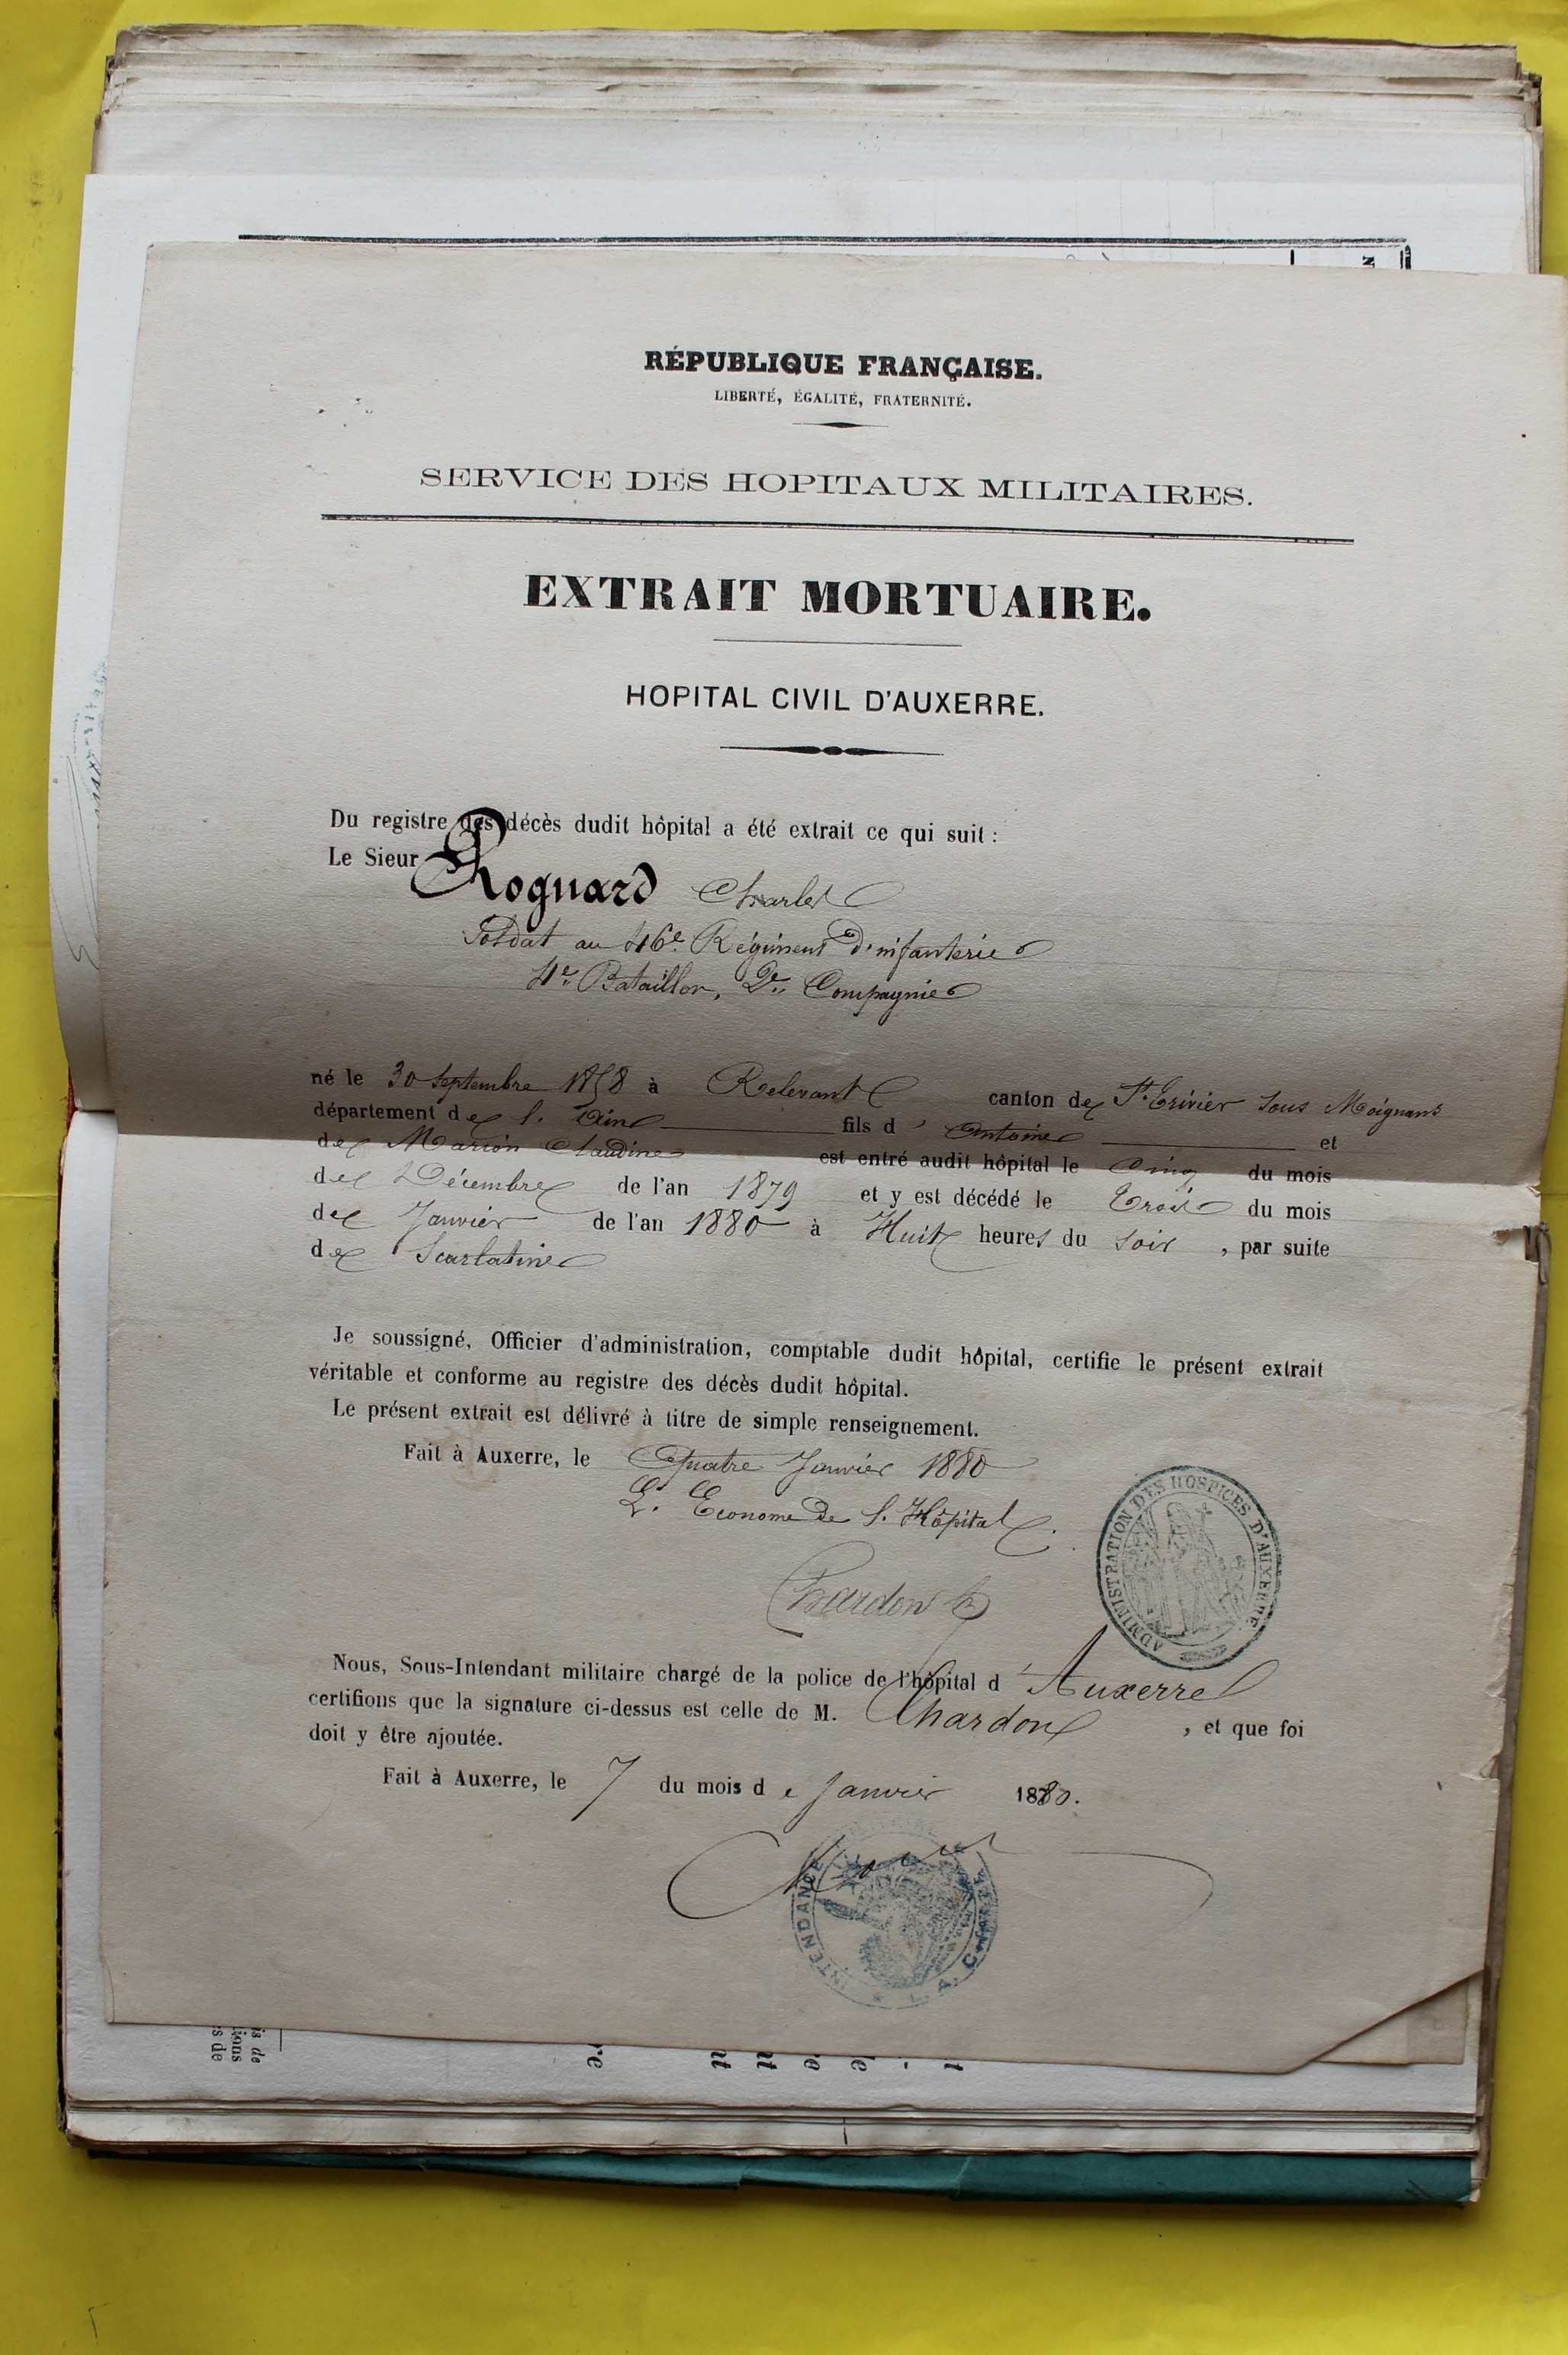 RÉPUBLIQUE FRANÇAISE.
LIBERTÉ, ÉGALITÉ, FRATERNITÉ.
SERVICE DES HOPITAUX MILITAIRES.
EXTRAIT MORTUAIRE.
HOPITAL CIVIL D'AUXERRE.
Du registre des décès dudit hôpital a été extrait ce qui suit :
Le Sieur Roguard Charles
Soldat au 46e Régiment d'infanterie
4e Bataillon, 2e Compagnie
né le 30 Septembre 1858 à Relevant canton de St Trivier sous Moignans
département de l'Ain fils d'Antoine et
de Marion Claudine est entré audit hôpital le Cinq du mois
de Décembre de l'an 1879 et y est décédé le Trois du mois
de Janvier de l'an 1880 à Huit heures du soir, par suite
de Scarlatine
Je soussigné, Officier d'administration, comptable dudit hôpital, certifie le présent extrait
véritable et conforme au registre des décès dudit hôpital.
Le présent extrait est délivré à titre de simple renseignement.
Fait à Auxerre, le Quatre Janvier 1880
L'Econome de l'Hôpital
Chardon
ADMINISTRATION DES HOSPICES D'AUXERRE
Nous, Sous-Intendant militaire chargé de la police de l'hôpital d'Auxerre
certifions que la signature ci-dessus est celle de M. Chardon, et que foi
doit y être ajoutée.
Fait à Auxerre, le 7 du mois de Janvier 1880.
INTENDANCE